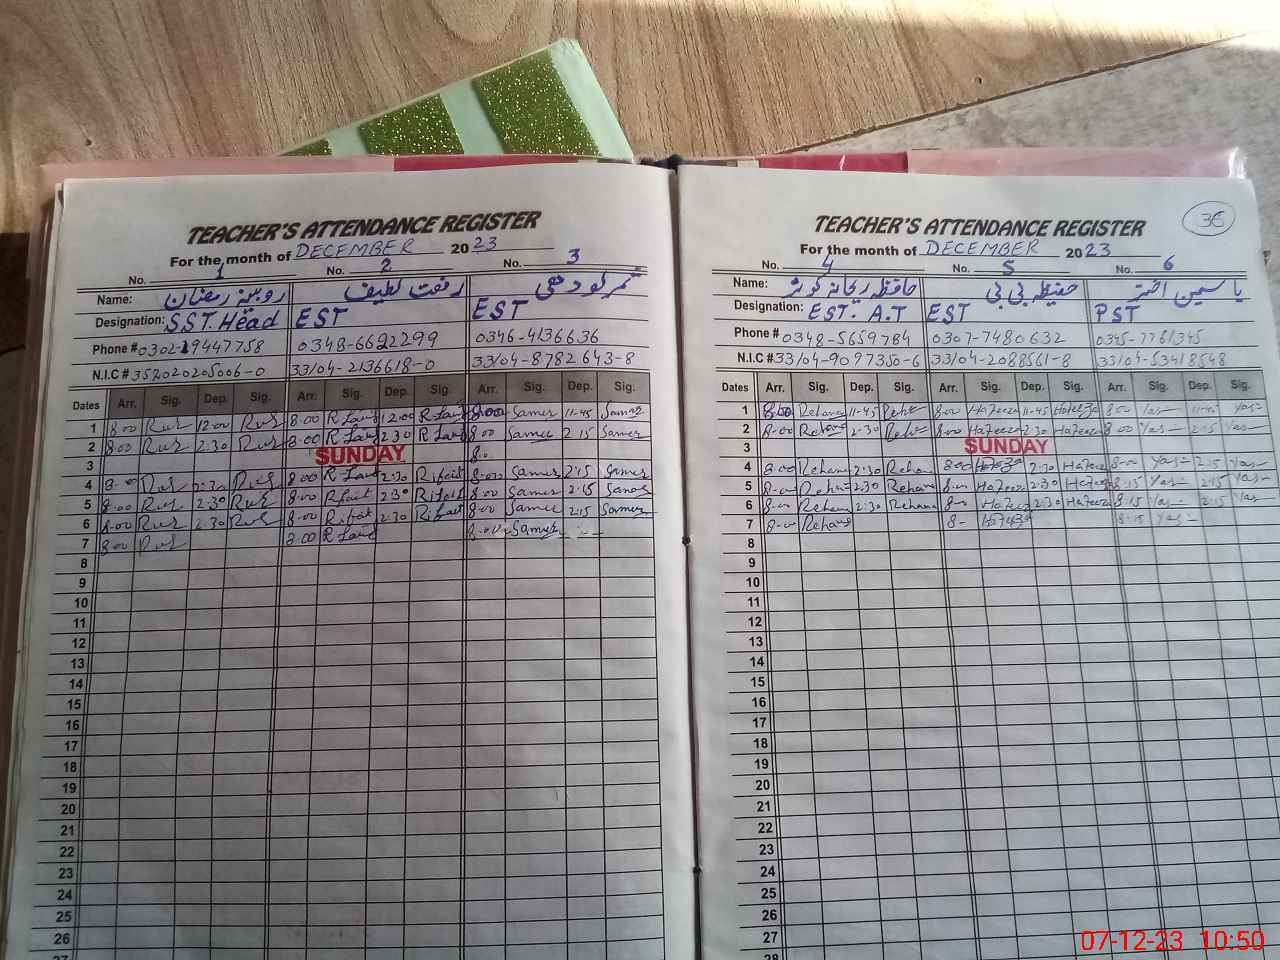 TEACHER'S ATTENDANCE REGISTER
For the month of DECEMBER 2023
No. 1 No. 2 No. 3
Name: روبینہ رمضان رفعت لطیف ثمر لودھی
Designation: S.S.T. Head EST EST
Phone # 0348-6622299 0346-4136636
N.I.C # 352020205006-0 33104-2136618-0 33104-8782643-8
Dates Arr. Sig. Dep. Sig. Arr. Sig. Dep. Sig. Arr. Sig. Dep. Sig.
1 8.00 12.00 8.00 12.00 8.00 Samer 11-45 Samer
2 8.00 2.30 8.00 2.30 8.00 Samer 2.15 Samer
3 SUNDAY 8.
4 8.00 2.30 8.00 2:30 Rifait 8.00 Samer 2.15 Samer
5 8.00 2.30 8.00 Rifait 2.30 Rifait 8.00 Samer 2.15 Samer
6 8.00 2.30 8.00 Rifat 2.30 Rifait 8.00 Samer 2.15 Samer
7 8.00 8.00 8.00 Samer
8
9
10
11
12
13
14
15
16
17
18
19
20
21
22
23
24
25
26
27
36
TEACHER'S ATTENDANCE REGISTER
For the month of DECEMBER 2023
No. 4 No. 5 No. 6
Name: حافظہ ریحانہ کوثر حفیظ بی بی یاسمین اختر
Designation: EST. A.T EST PST
Phone # 0348-5659784 0307-7480632 0345-7761345
N.I.C # 33104-9097350-6 33104-2088561-8 33104-53418548
Dates Arr. Sig. Dep. Sig. Arr. Sig. Dep. Sig. Arr. Sig. Dep. Sig.
1 8.00 Rehana 11-45 8.00 Hafeeza 11-45 Hafeeza 8.00 Yas 11.45 Yas
2 8.00 Rehana 2.30 8.00 Hafeeza 2.30 Hafeeza 8.00 Yas 2.15 Yas
3 SUNDAY
4 8.00 Rehana 2:30 Rehana 8.00 2.30 Hafeeza 8.00 Yas 2.15 Yas
5 8.00 Rehana 2.30 Rehana 8.00 Hafeeza 2.30 Hafeeza 8.15 Yas 2.15 Yas
6 8.00 Rehana 2.30 Rehana 8.00 Hafeeza 2.30 Hafeeza 8.15 Yas 2.15 Yas
7 8.00 Rehana 8- Hafeeza 8.15 Yas
8
9
10
11
12
13
14
15
16
17
18
19
20
21
22
23
24
25
26
27
28
07-12-23 10:50